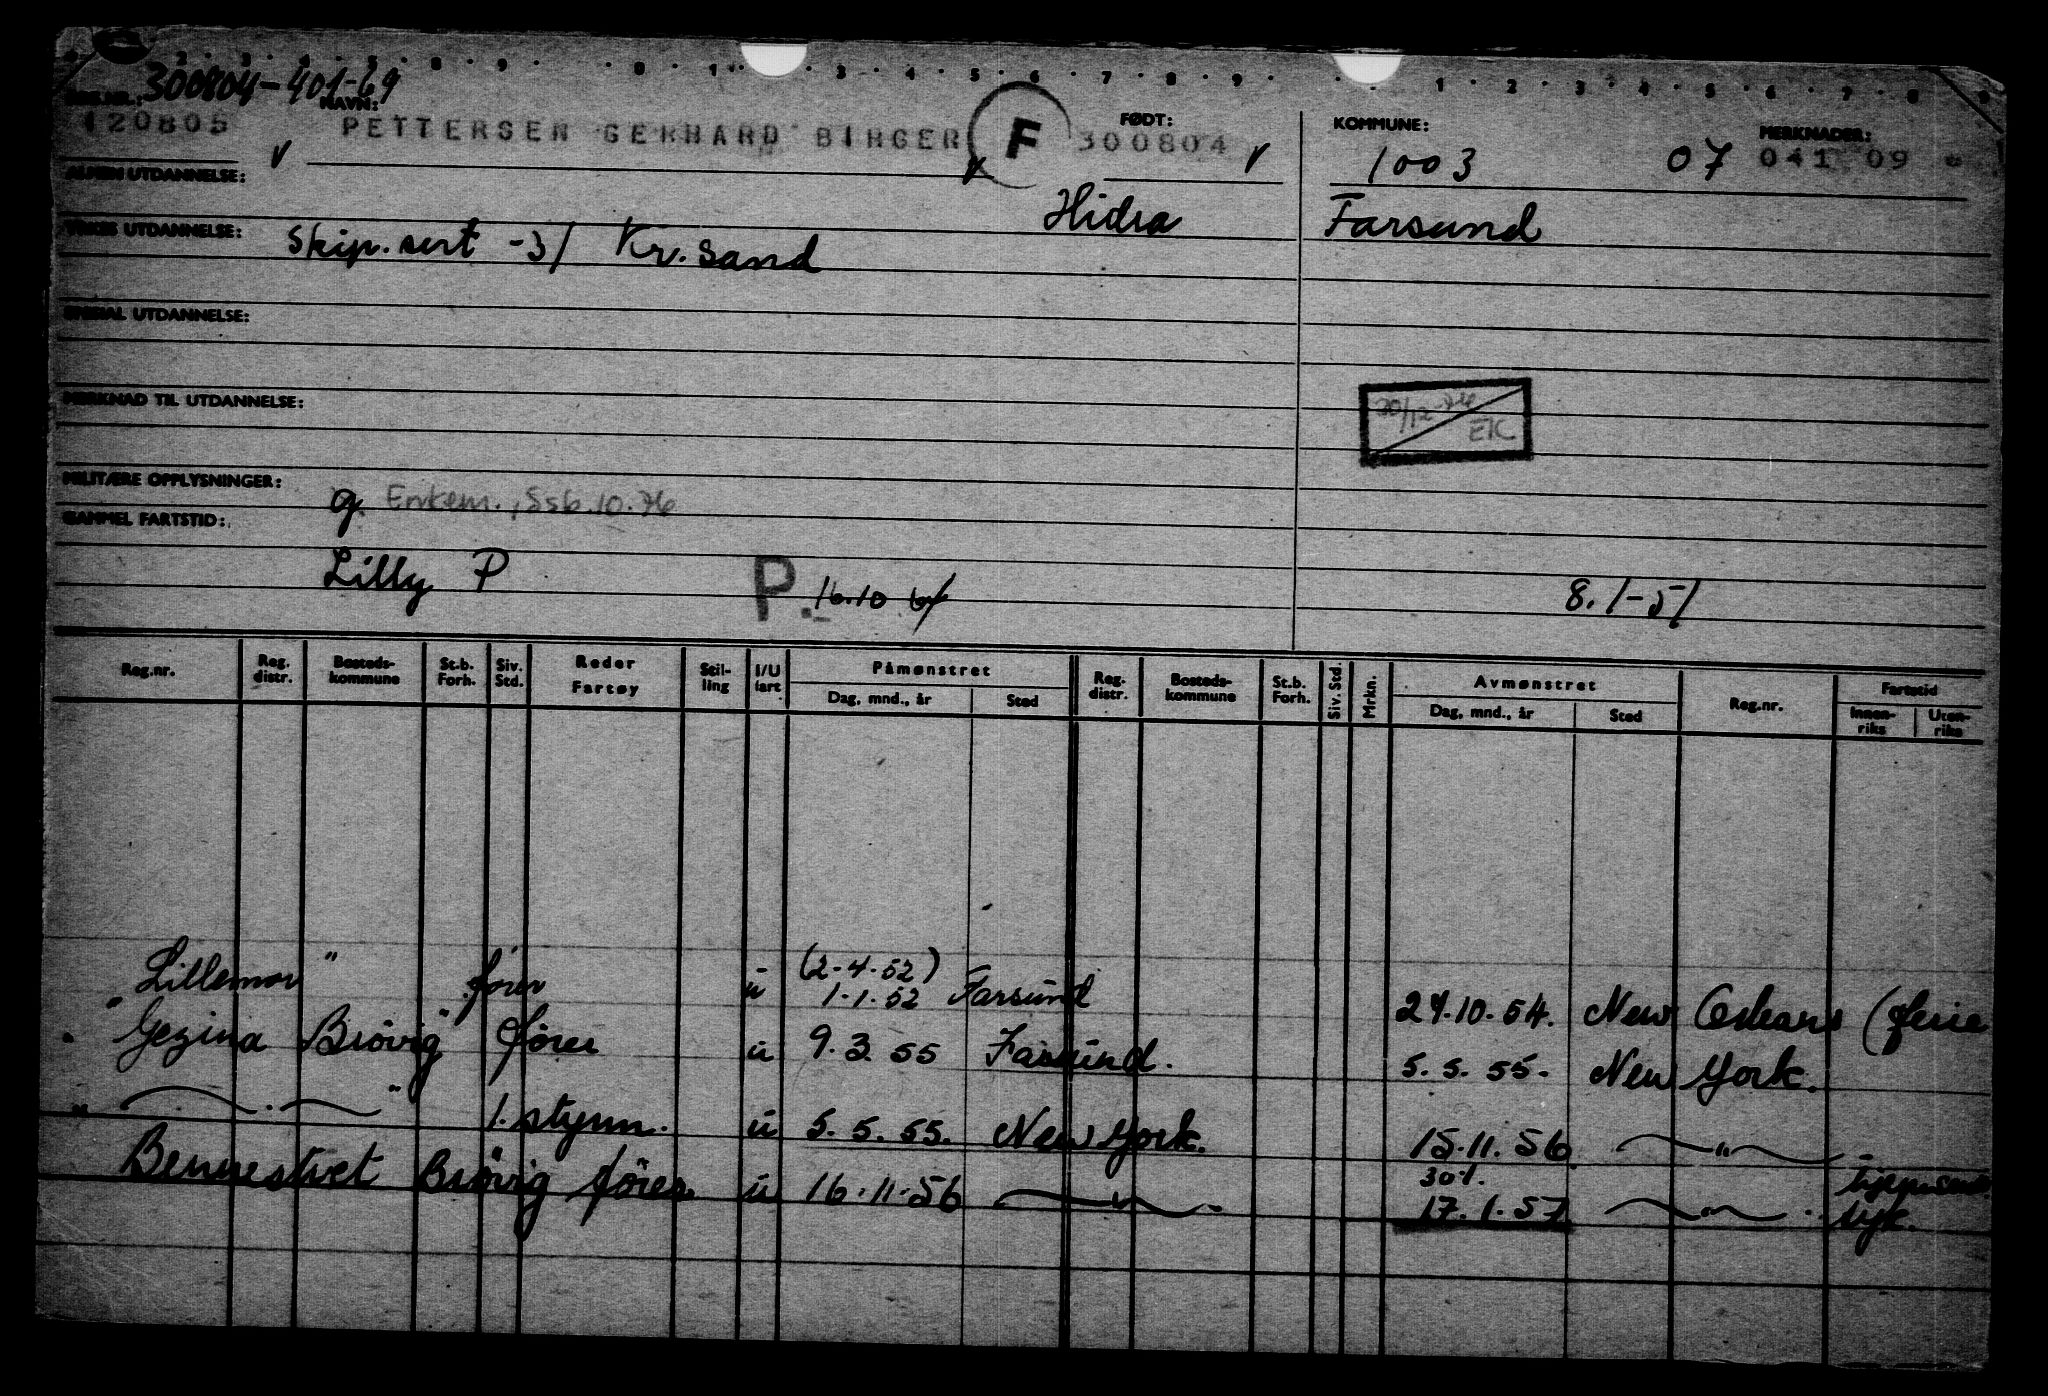 300804-401-69
NAVN: FØDT: KOMMUNE: MERKNADER:
120805 PETTERSEN GERHARD BIRGER F 300804 1003 07 041 09
ALMEN UTDANNELSE: Hidra Farsund
YRKES UTDANNELSE: Skip.sert -31 Kr.sand
SPESIAL UTDANNELSE:
MERKNAD TIL UTDANNELSE:
EK
MILITÆRE OPPLYSNINGER: g. Enkem.,
GAMMEL FARTSTID:
Lilly P P. 16.10 8.1-51
Reg.nr. Reg. distr. Bosteds-kommune St.b. Forh. Siv. Std. Reder Fartøy Stil-ling I/U fart Påmønstret Reg. distr. Bosteds-kommune St.b. Forh. Siv. Std. Mrkn. Avmønstret Reg.nr. Fartstid
Dag, mnd., år Sted Dag, mnd., år Sted Innen-riks Uten-riks
(2-4-52)
Lillemor" fører u 1.1.52 Farsund 27.10.54. New Orleans (ferie
"Gezina Brövig" fører u 9.3.55 Farsund. 5.5.55. New York.
" — . — " 1. styrm. u 5.5.55. New York. 15.11.56. — " —
Bennestvet Brövig fører u 16.11.56 — " — 17.1.57 — " — syk.